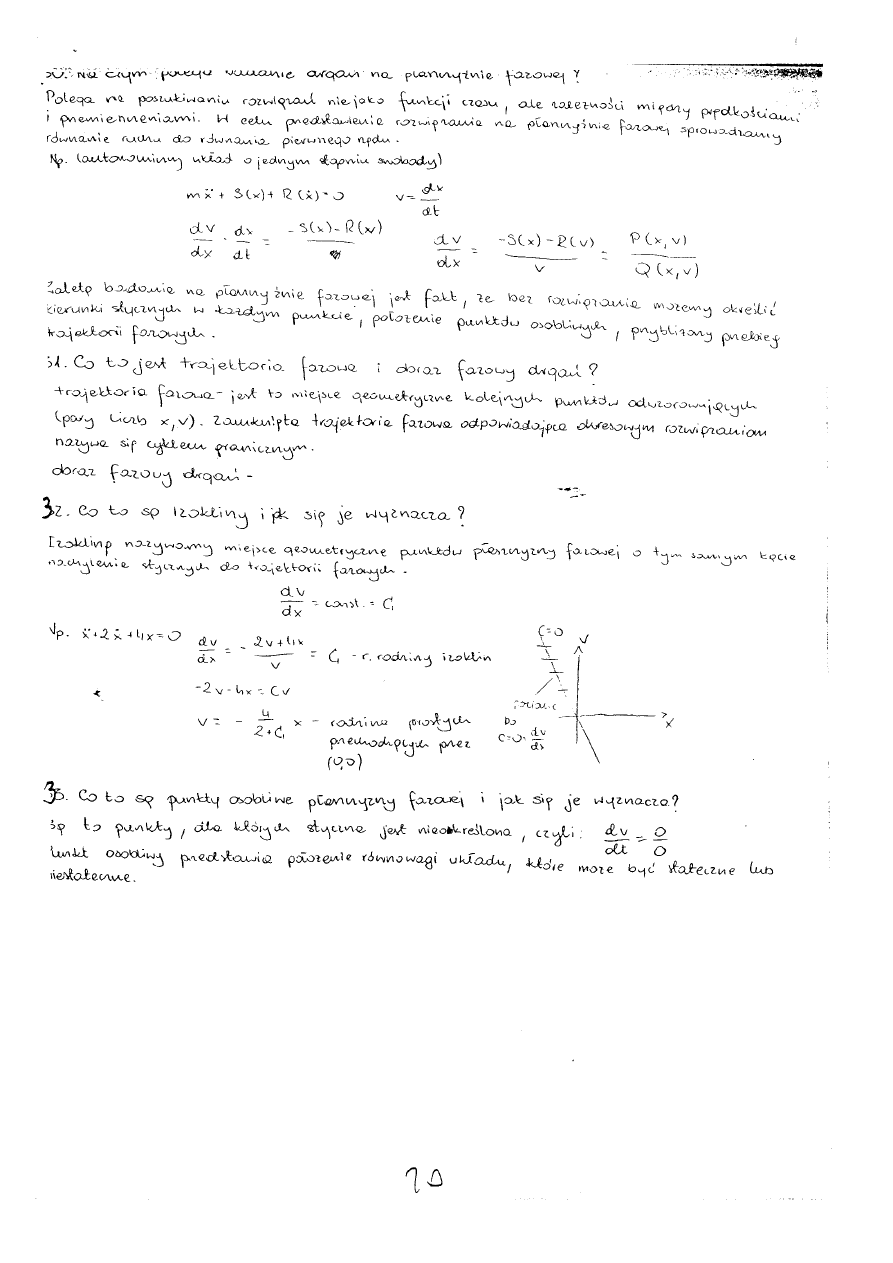 30. Na czym polega badanie drgań na płaszczyźnie fazowej?
Polega na poszukiwaniu rozwiązań nie jako funkcji czasu, ale zależności między prędkościami
i przemieszczeniami. W celu przedstawienia rozwiązania na płaszczyźnie fazowej sprowadzamy
równanie ruchu do równania pierwszego rzędu.
Np. (autonomiczny układ o jednym stopniu swobody)
mẍ + S(x) + R(ẋ) = 0 v = dx/dt
dv/dx · dx/dt = -S(x)-R(v) dv/dx = -S(x)-R(v)/v = P(x,v)/Q(x,v)
Zaletą badania na płaszczyźnie fazowej jest fakt, że bez rozwiązania możemy określić
kierunki stycznych w każdym punkcie, położenie punktów osobliwych, przybliżony przebieg
trajektorii fazowych.
31. Co to jest trajektoria fazowa i obraz fazowy drgań?
trajektoria fazowa - jest to miejsce geometryczne kolejnych punktów odwzorowujących
(pary liczb x,v). Zamknięta trajektoria fazowa odpowiadająca okresowym rozwiązaniom
nazywa się cyklem granicznym.
obraz fazowy drgań -
32. Co to są izokliny i jak się je wyznacza?
Izokliną nazywamy miejsce geometryczne punktów płaszczyzny fazowej o tym samym kącie
nachylenia stycznych do trajektorii fazowych.
dv/dx = const. = C₁
Np. ẍ+2ẋ+4x=0 dv/dx = - 2v+4x/v = C₁ - r. rodziny izoklin
-2v-4x = Cv
v = - 4/2+C₁ x - rodzina prostych
przechodzących przez
(0,0)
C=0 v
x
bo
C=0= dv/dx
33. Co to są punkty osobliwe płaszczyzny fazowej i jak się je wyznacza?
Są to punkty, dla których styczna jest nieokreślona, czyli: dv/dt = 0/0
Punkt osobliwy przedstawia położenie równowagi układu, które może być stateczne lub
niestateczne.
20